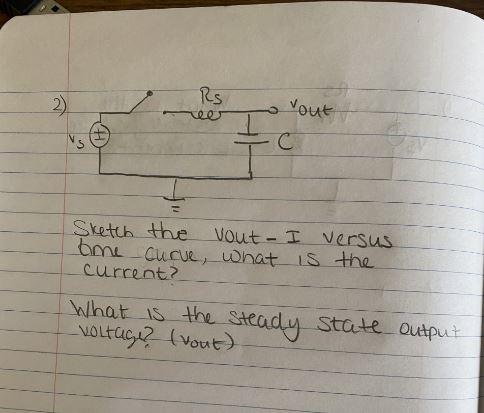 2)
Rs
Vout
Vs
C
Sketch the vout - I versus
time curve, what is the
current?
What is the steady state output
voltage? (vout)